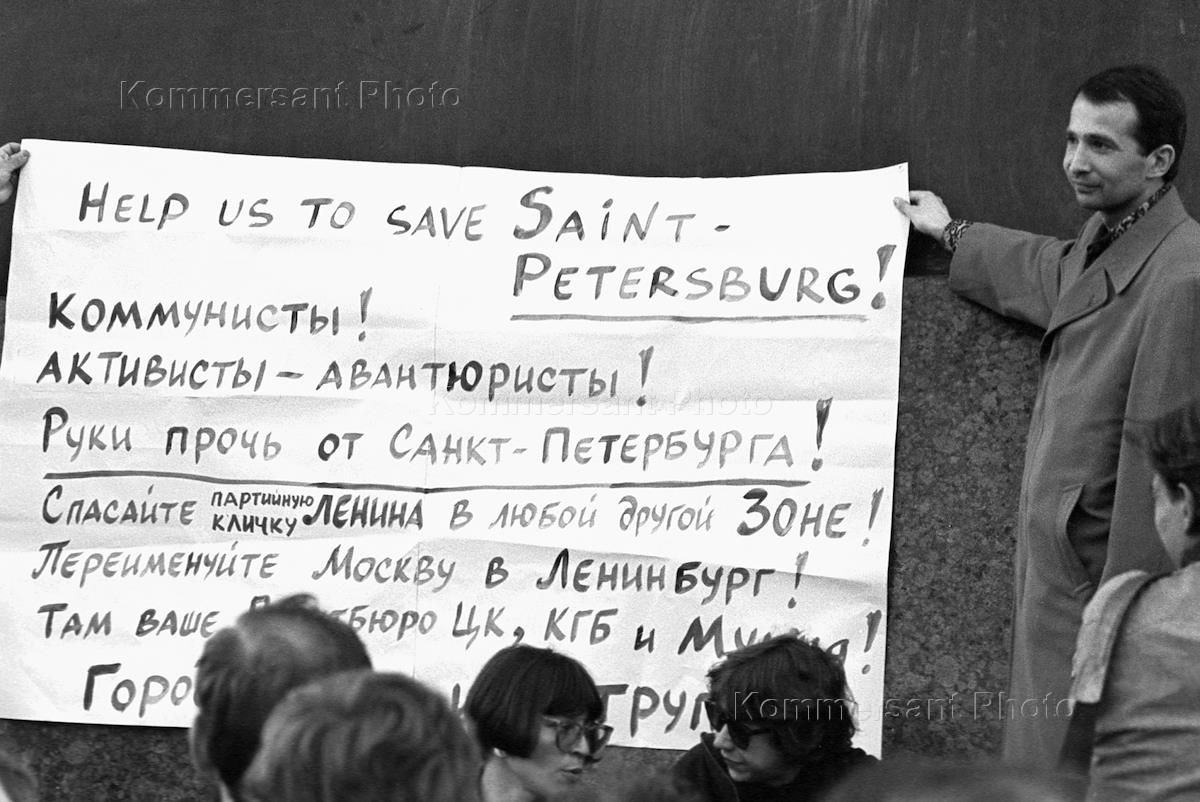 Kommersant Photo
HELP US TO SAVE SAINT-
PETERSBURG!
КОММУНИСТЫ!
АКТИВИСТЫ – АВАНТЮРИСТЫ!
Kommersant Photo
РУКИ ПРОЧЬ ОТ САНКТ-ПЕТЕРБУРГА!
СПАСАЙТЕ ПАРТИЙНУЮ КЛИЧКУ ЛЕНИНА В ЛЮБОЙ ДРУГОЙ ЗОНЕ!
ПЕРЕИМЕНУЙТЕ МОСКВУ В ЛЕНИНБУРГ!
ТАМ ВАШЕ ЦК, КГБ И
Kommersant Photo